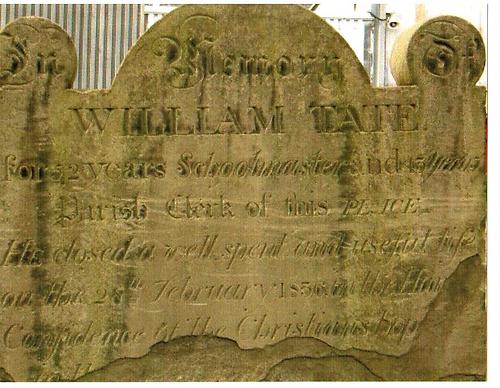 In Memory Of
WILLIAM TATE
for 52 years Schoolmaster and 43 years
Parish Clerk of this PLACE
He closed a well spent and useful life
on the 28th February 1836 in the
Confidence of the Christians hope